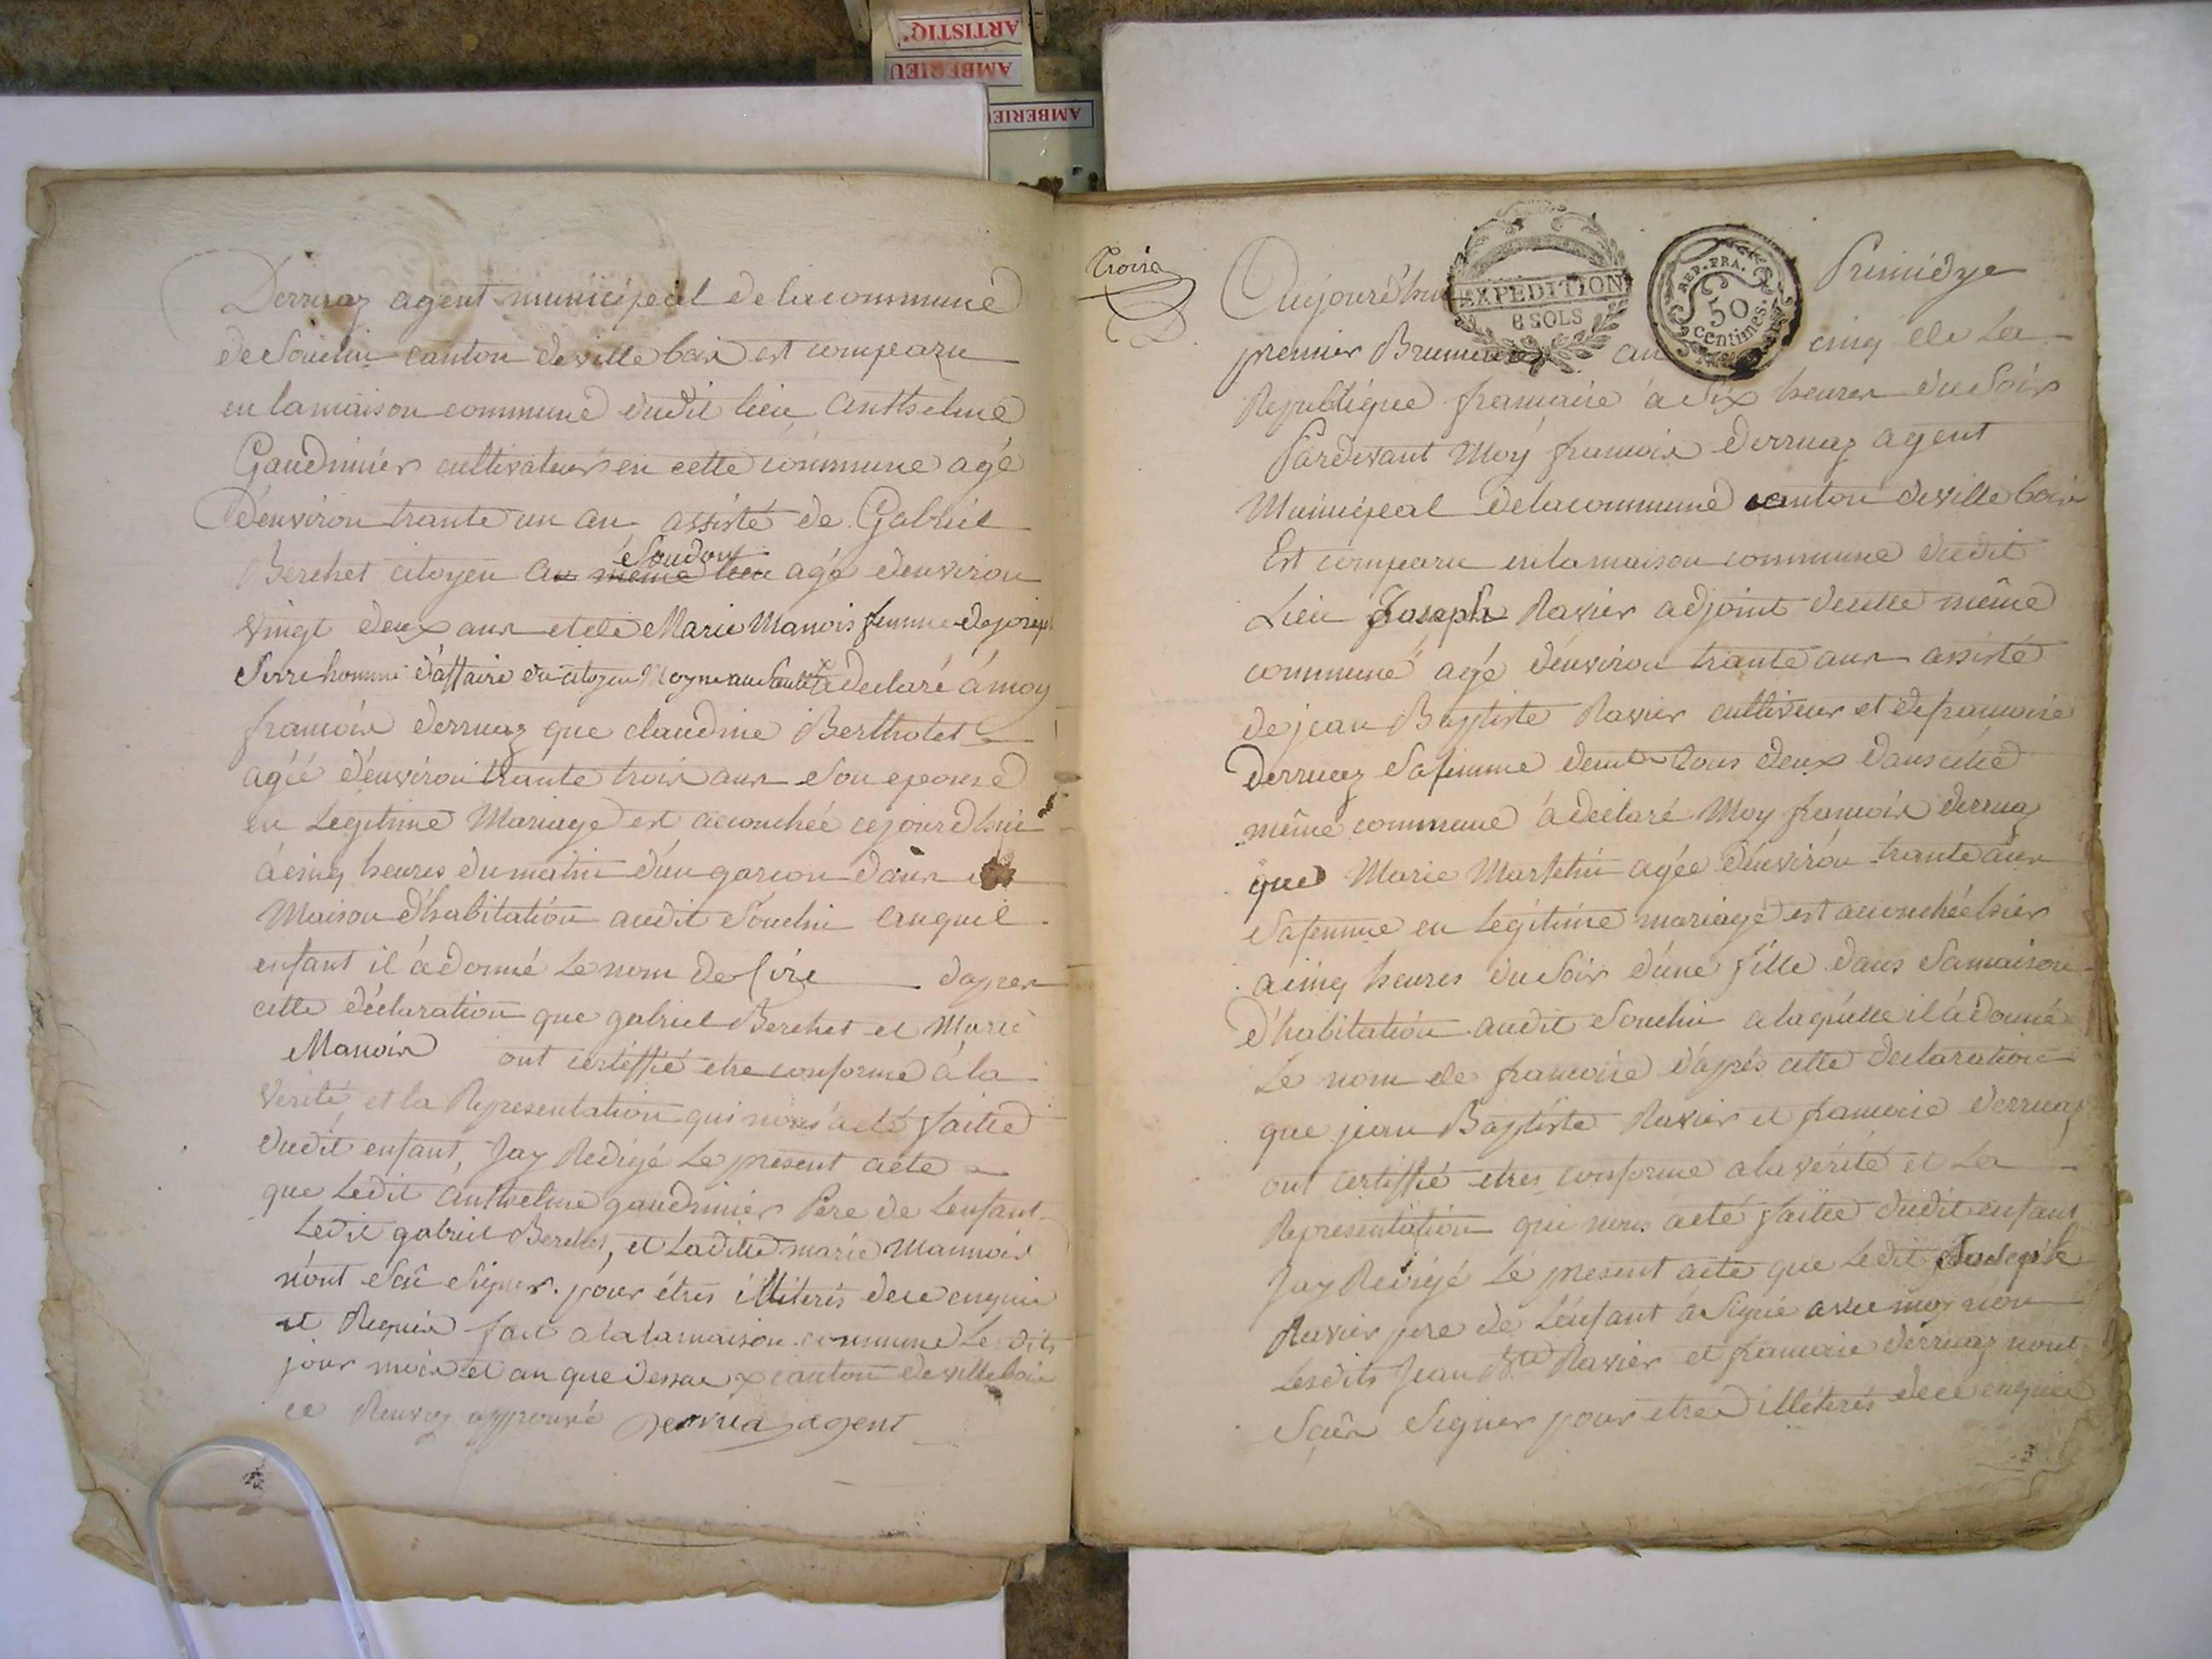 ARTISTIQ'
AMBERIEU
AMBERIEU
Derruaz agent municipal de la commune
de Souclin canton de ville bois est comparu
en la maison commune dudit lieu Anthelme
Gaudinier cultivateur en cette commune agé
d'environ trante un an assisté de Gabriel
Soudon
Berchet citoyen au même lieu agé d'environ
vingt deux ans et de Marie Manois femme de joseph
Serre homme d'affaire du citoyen Moyne au Sault a declaré á moy
francois derruaz que claudine Berthotet
agéé d'environ trante trois ans son epouse
en Legitime Mariage est accouchée cejourdhui
á cinq heures du matin d'un garcon dans
Maison d'habitation audit Souclin auquel
enfant il á donné le nom de dapres
cette déclaration que gabriel Berchet et Marie
Manois ont certiffié etre conforme á la
verité, et la Representation qui nous a eté faitte
dudit enfant, Jay Redigé Le present acte
que Ledit anthelme gaudinier Pere de Lenfant
Ledit gabriel Berchet, et Laditte marie Mannois
n'ont Scû Signer. pour étres illiterés de ce enquis
et Requis fait a la lamaison commune Le dits
jour mois et an que dessus x canton de ville bois
ce Renvoy approuvé derruaz agent
Troise
Aujourd'hui Primidye
EXPEDITION
8 SOLS
REP. FRA.
50
Centimes.
premier Brumaire an cinq de La
Republique francaise á Six heures du Soir
Pardevant Moy francois derruaz agent
Municipal de la commune canton de ville bois
Est comparu en la maison commune dudit
Lieu Joseph Ravier adjoint de cette même
commune agé d'environ trante ans assisté
de jean Baptiste Ravier cultiveur et de francoise
derruaz Sa femme tous deux dans cette
même commune á declaré Moy francois derruaz
que Marie Martelin agée d'environ trante ans
Sa femme en Legitime mariage est accouchée hier
a cinq heures du Soir d'une fille dans Sa maison
d'habitation audit Souclin a laquelle il á donné
Le nom de francoise d'après cette declaration
que jean Baptiste Ravier et francoise derruaz
ont certiffié etres conforme a la vérité et La
Representation qui nous á eté faitte dudit enfant
Jay Redigé Le present acte que Ledit Joseph
Ravier pere de L'enfant á Signé avec moy non
Lesdits Jean Bte Ravier et francoise derruaz nont
Scûs Signer pour etres illéterés de ce enquis